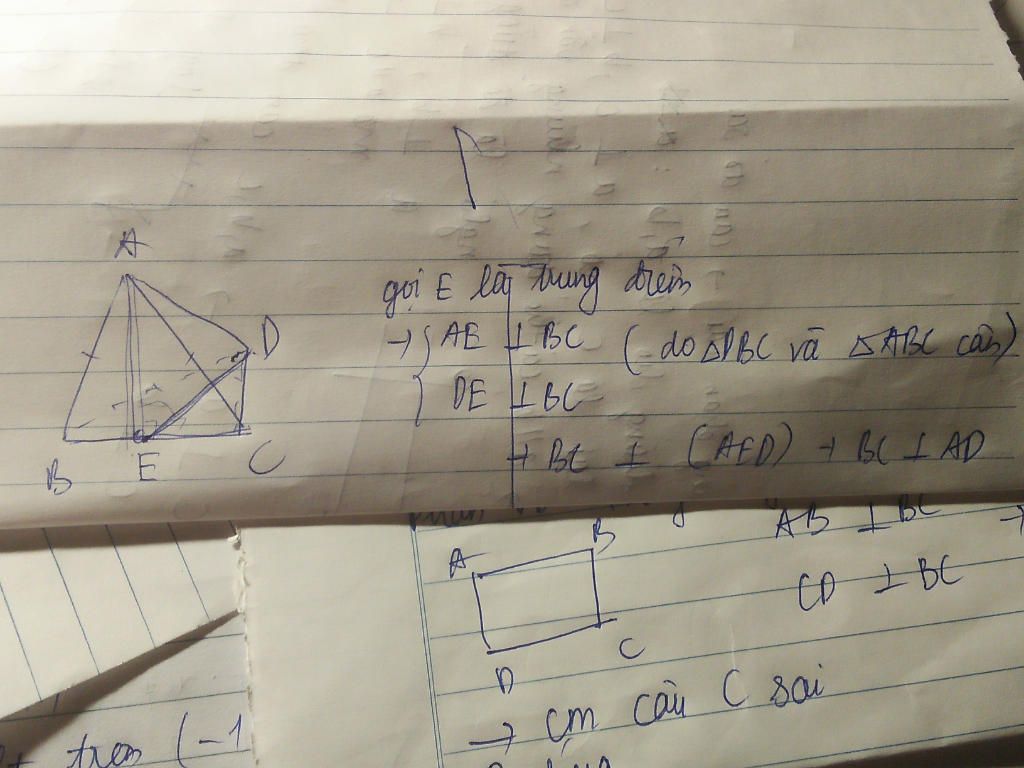 A
D
B
E
C
gọi E là trung điểm
→ { AE ⊥ BC ( do △DBC và △ABC cân)
{ DE ⊥ BC
→ BC ⊥ (AED) → BC ⊥ AD
A
B
D
C
AB ⊥ BC →
CD ⊥ BC
→ cm câu C sai
(-1